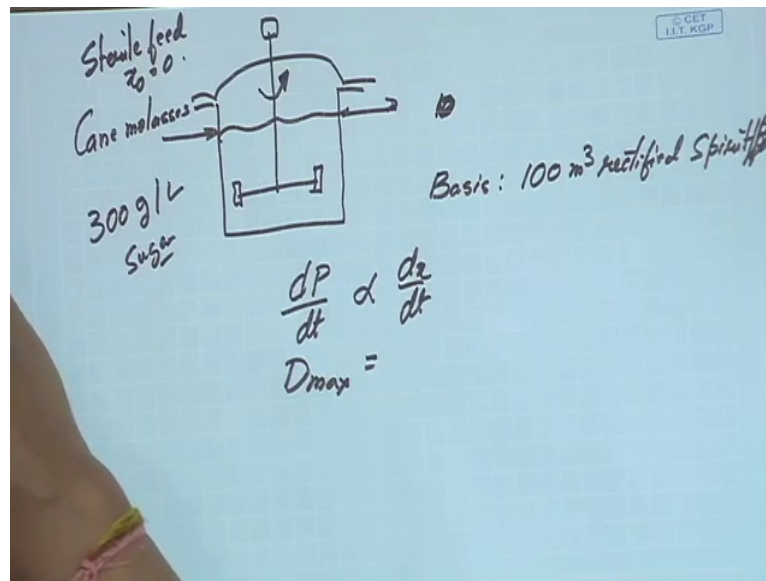 © CET
I.I.T. KGP
Sterile feed
x₀ = 0.
Cane molasses
300 g/L
Sugar
Basis: 100 m³ rectified Spirit/
dP/dt ∝ dx/dt
Dmax =